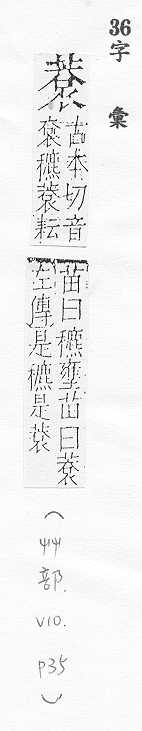 36字彙
蓘
古本切音
袞穮蓘耘
苗曰穮壅苗曰蓘
左傳是穮是蓘
(艸部. V10. P35)